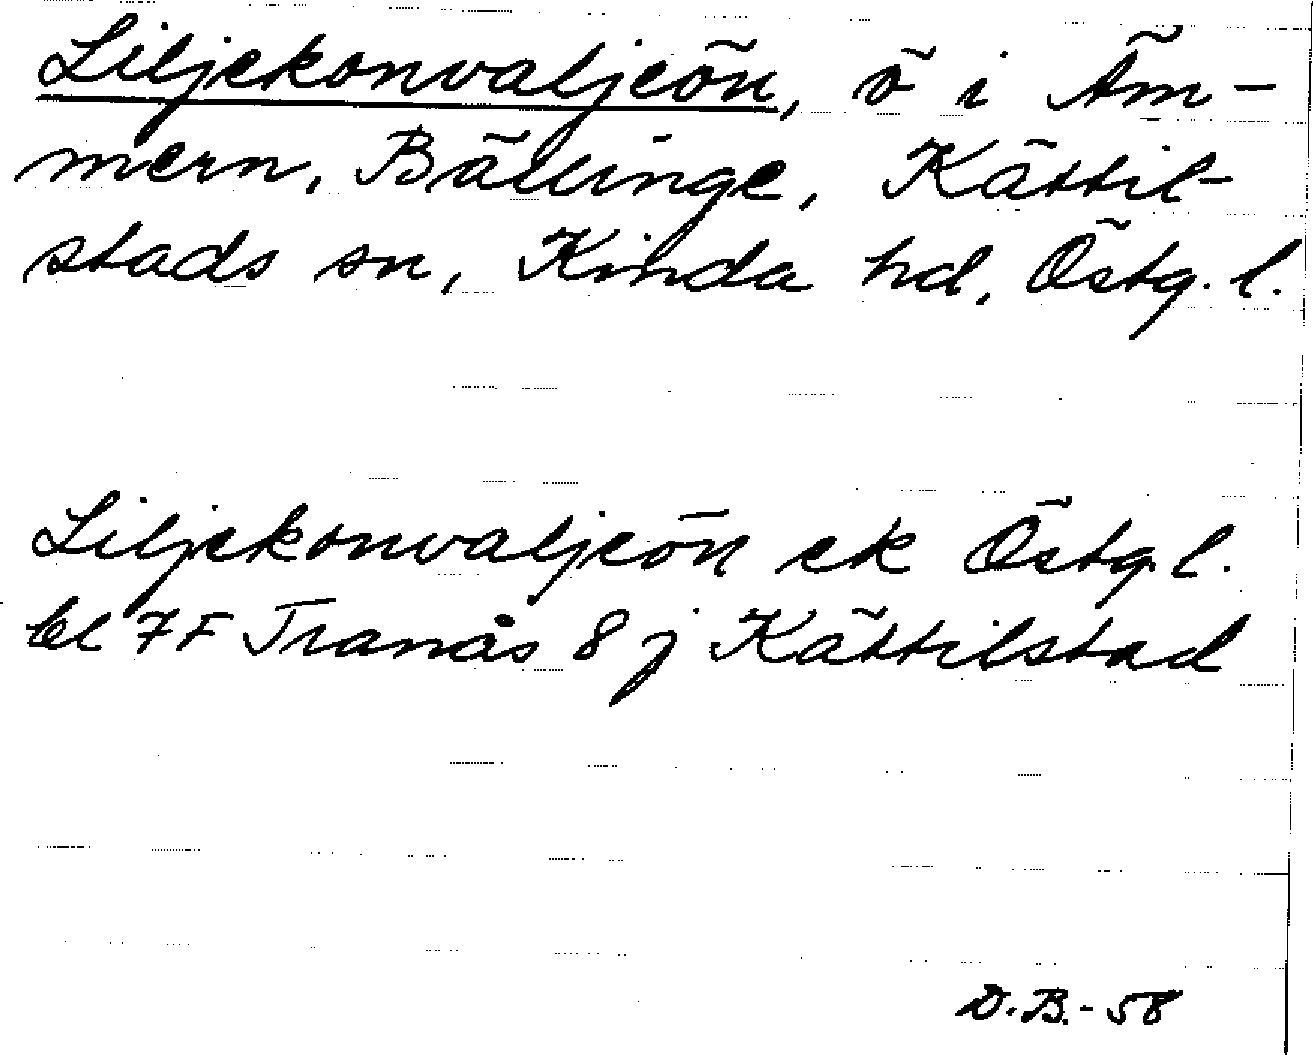 Liljekonvaljeön, ö i Äm-
mern, Bällinge, Kättil-
stads sn, Kinda hd, Östg. l.
Liljekonvaljeön ek Östg l.
bl 7F Tranås 8 j Kättilstad
D.B.-58